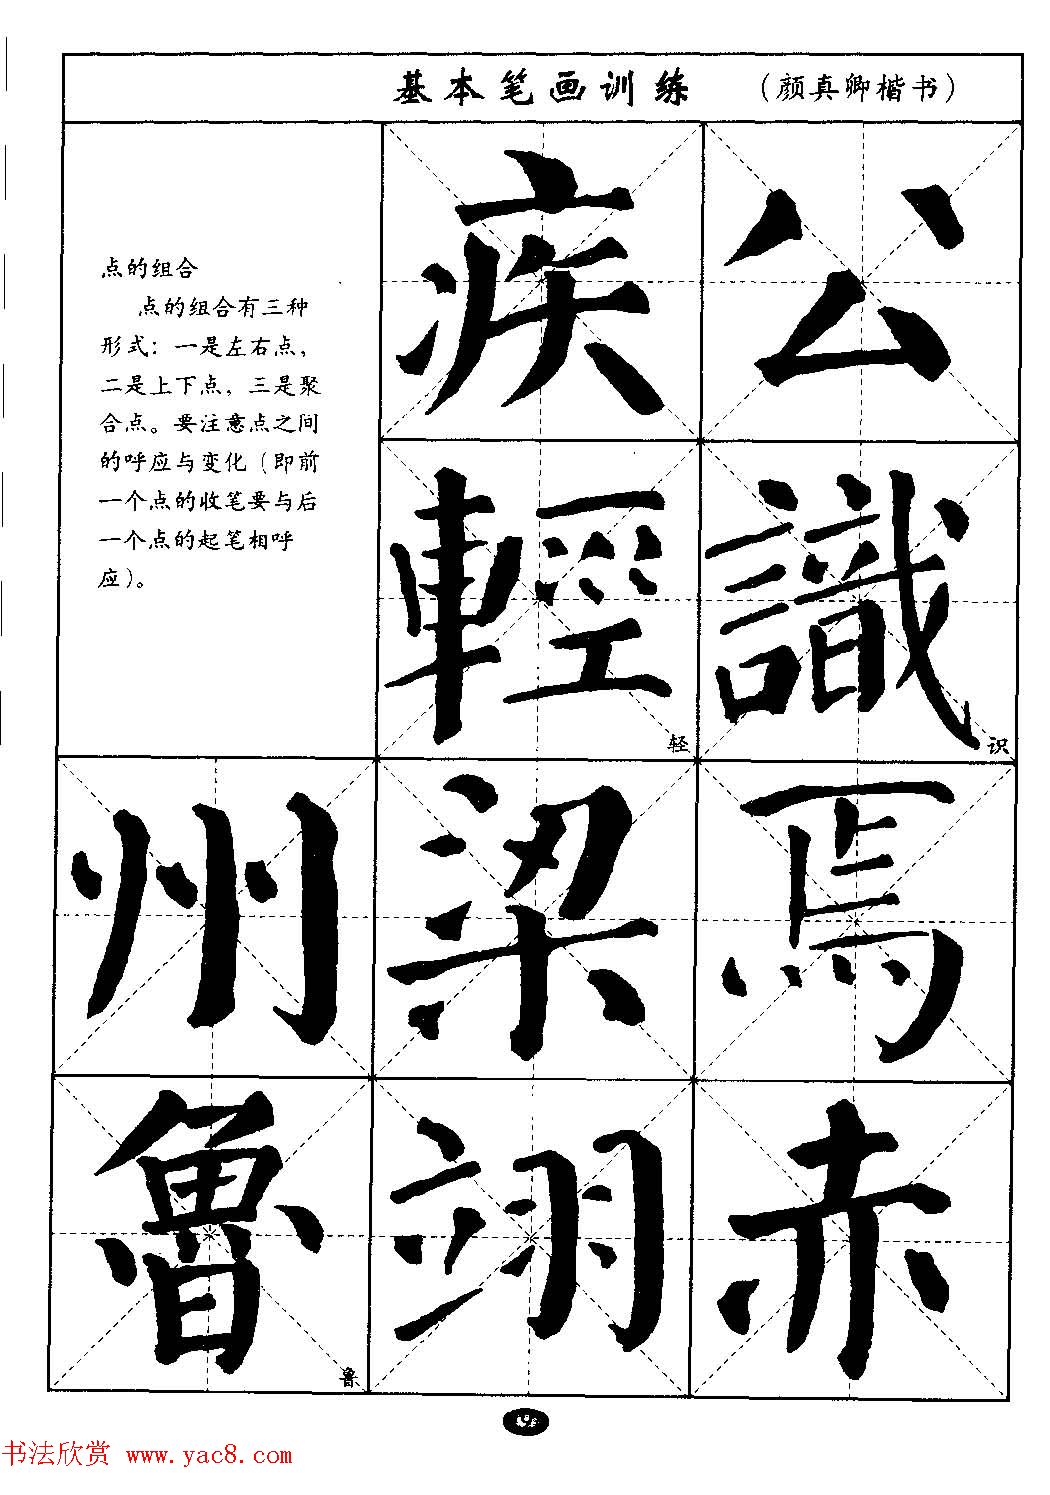 基本笔画训练 （颜真卿楷书）
点的组合
点的组合有三种
形式：一是左右点，
二是上下点，三是聚
合点。要注意点之间
的呼应与变化（即前
一个点的收笔要与后
一个点的起笔相呼
应）。
疾 公
輕 轻 識 识
州 梁 焉
魯 鲁 翊 赤
书法欣赏 www.yac8.com